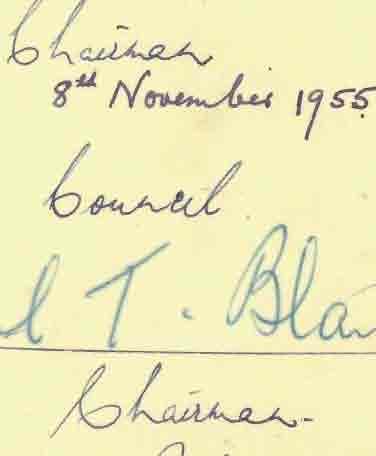 Chairman
8th November 1955.
Council
l T. Bla
Chairman.